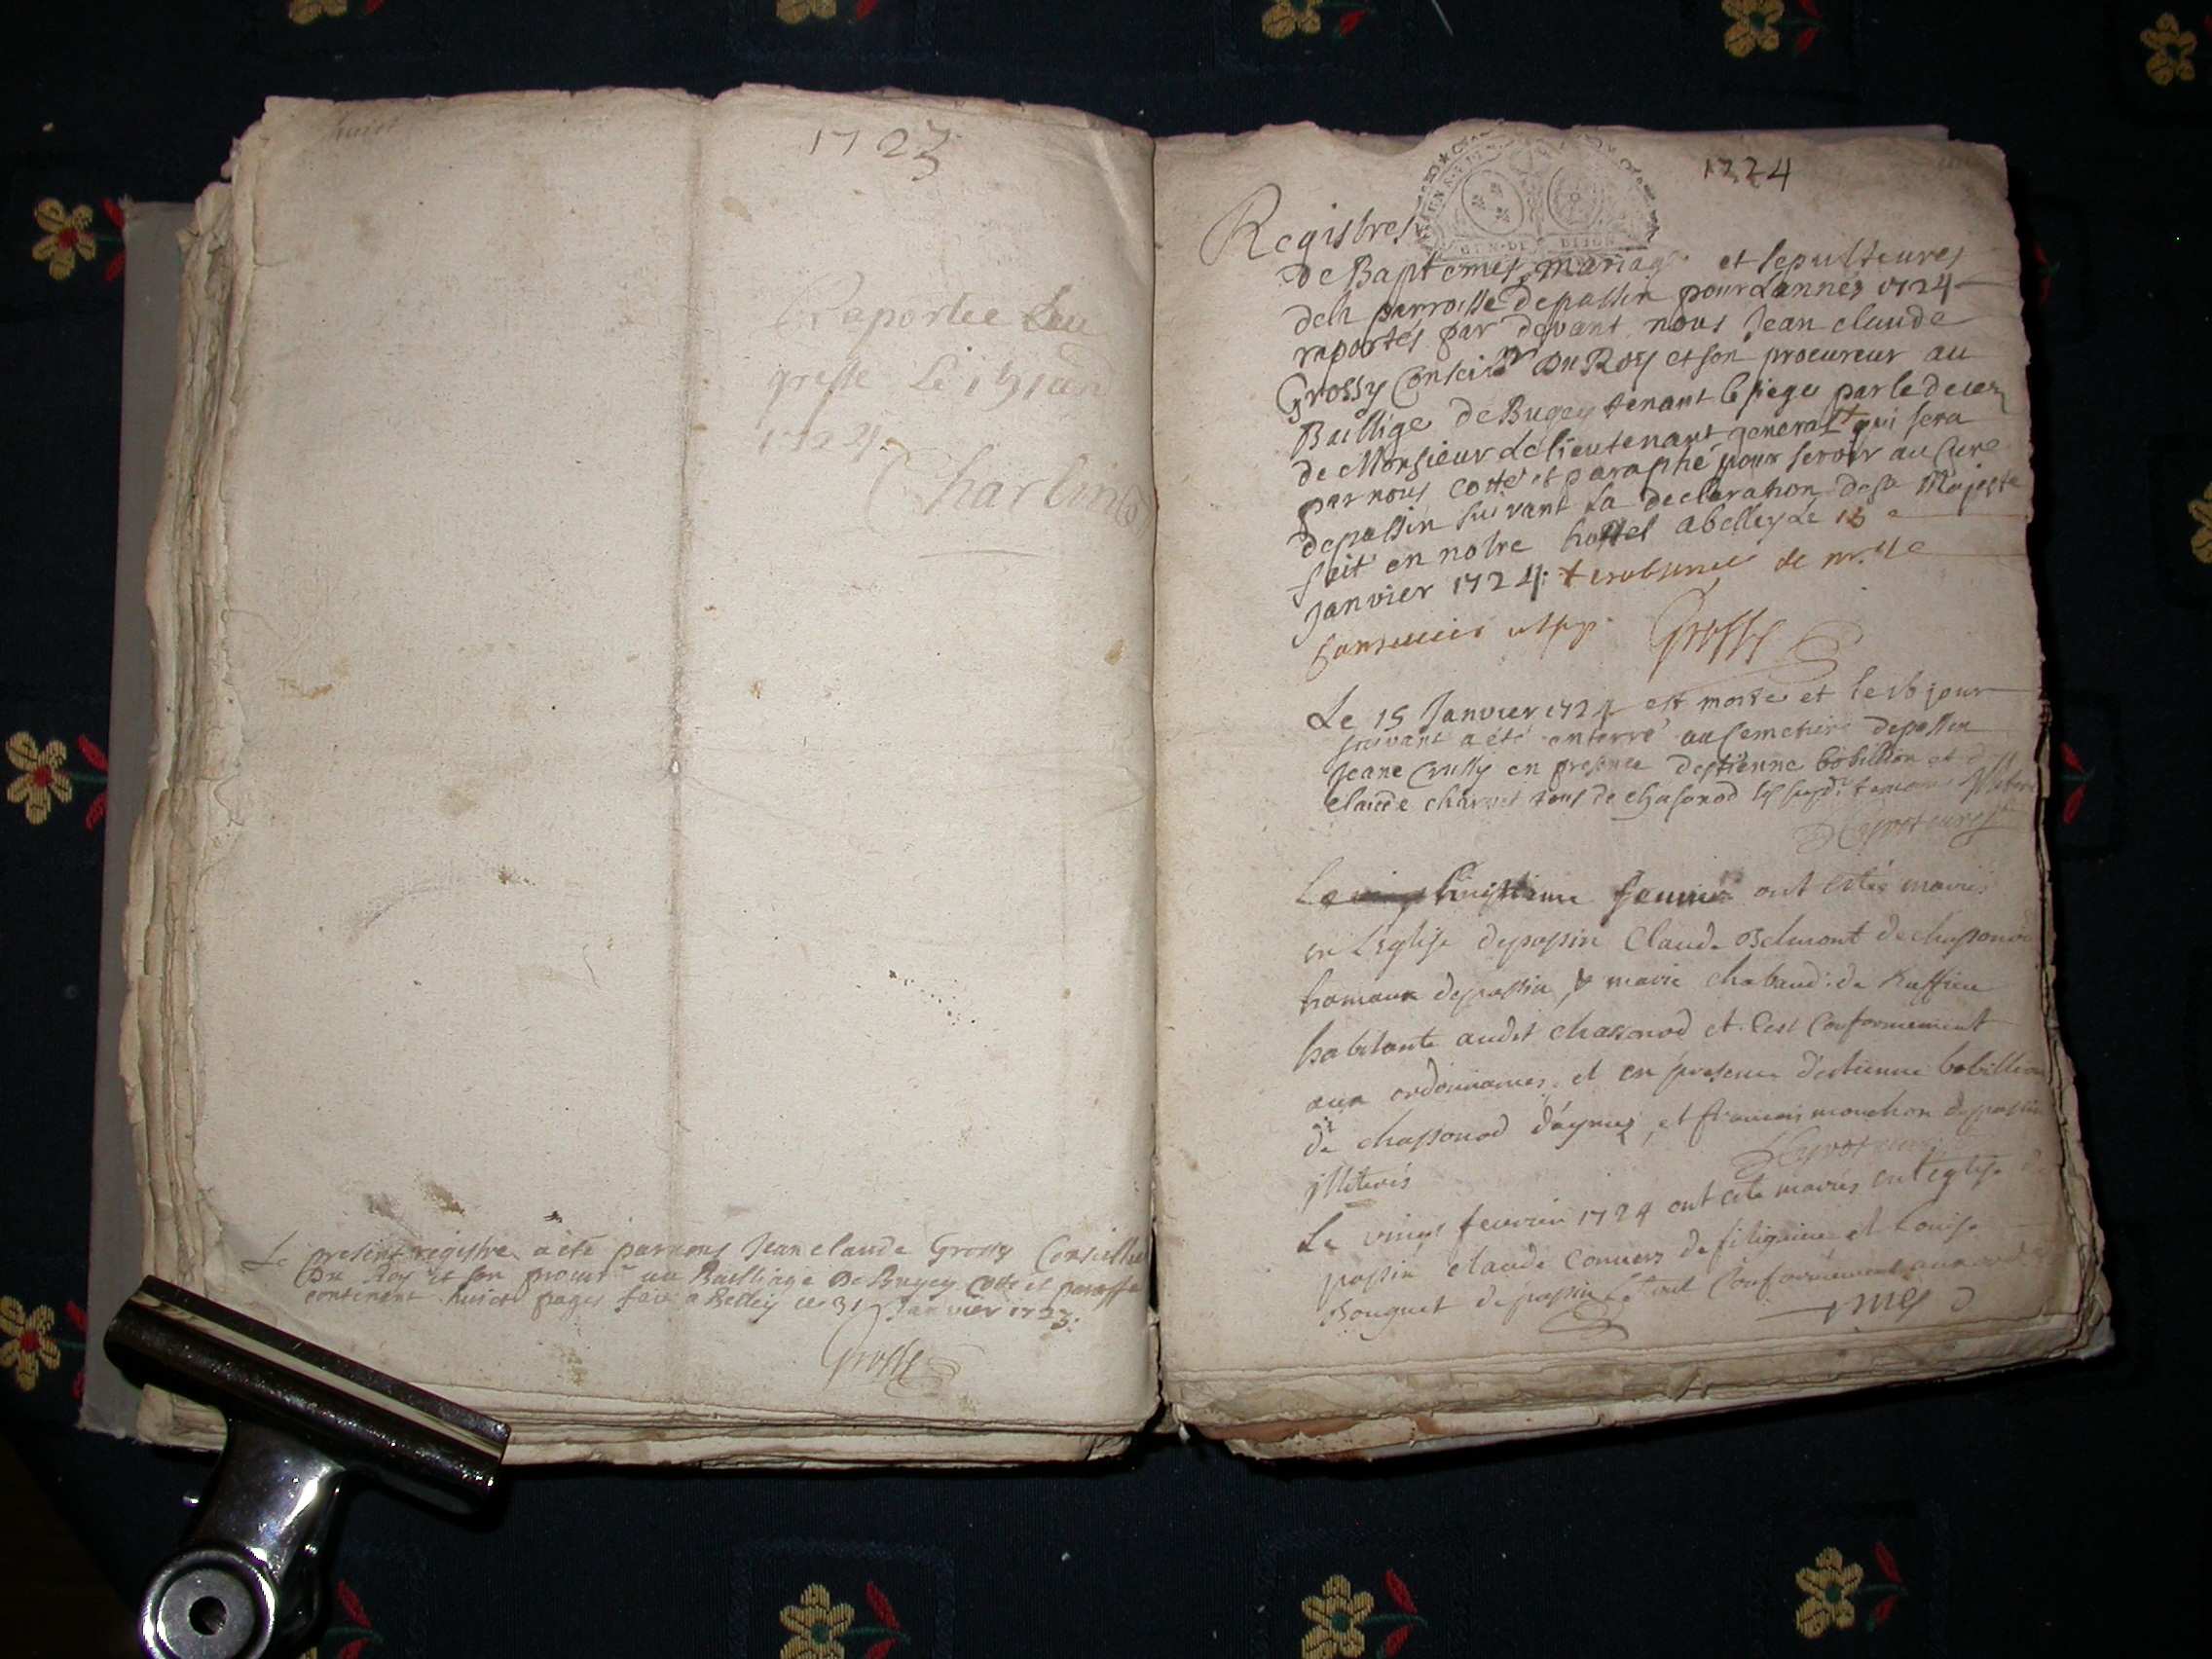 huict
1723
Raportee au
greffe Le 15 janv
1724
Charlin
Le present registre a été par nous Jean claude Grossy Conseiller
Du Roy et son procur au Bailliage De Bugey Cotté et paraffe
contenant huict pages fait a Belley ce 31 Janvier 1723.
Grossy
1724
GEN. DE DIJON
Registres
de Baptemes, mariages et sepulteures
dela parroisse depassin pour Lannéé 1724
raportés par devant nous Jean claude
Grossy Conseiller Du Roy et son procureur au
Baillige de Bugey tenant le siege par le deces
de Monsieur Le lieutenant general + qui sera
par nous cotté et paraphé pour servir au Cure
depassin suivant La declaration de sa Majeste
fait en notre hostel a belley Le 13
Janvier 1724. + et absence de
Grossy
Le 15 Janvier 1724 est morte et le 16 jour
suivant a été enterré au Cemetiere depassin
Jeane en presence destienne bobillion et
Claude charvet tous de chasonod temoins
Le huictieme fevrier ont estés mariés
en L'eglise depassin Claude Belmont de chassonod
hameau depassin, & marie chabaud de Ruffieu
habitante audit chassonod et c'est conformement
aux ordonnances, et en presence d'estienne bobillion
de chassonod et francois mouchon depassin
illiterés
Le vingt fevrier 1724 ont été mariés en l'eglise de
passin claude convers de et Louise
Bouguet de passin le tout Conformement aux ordo